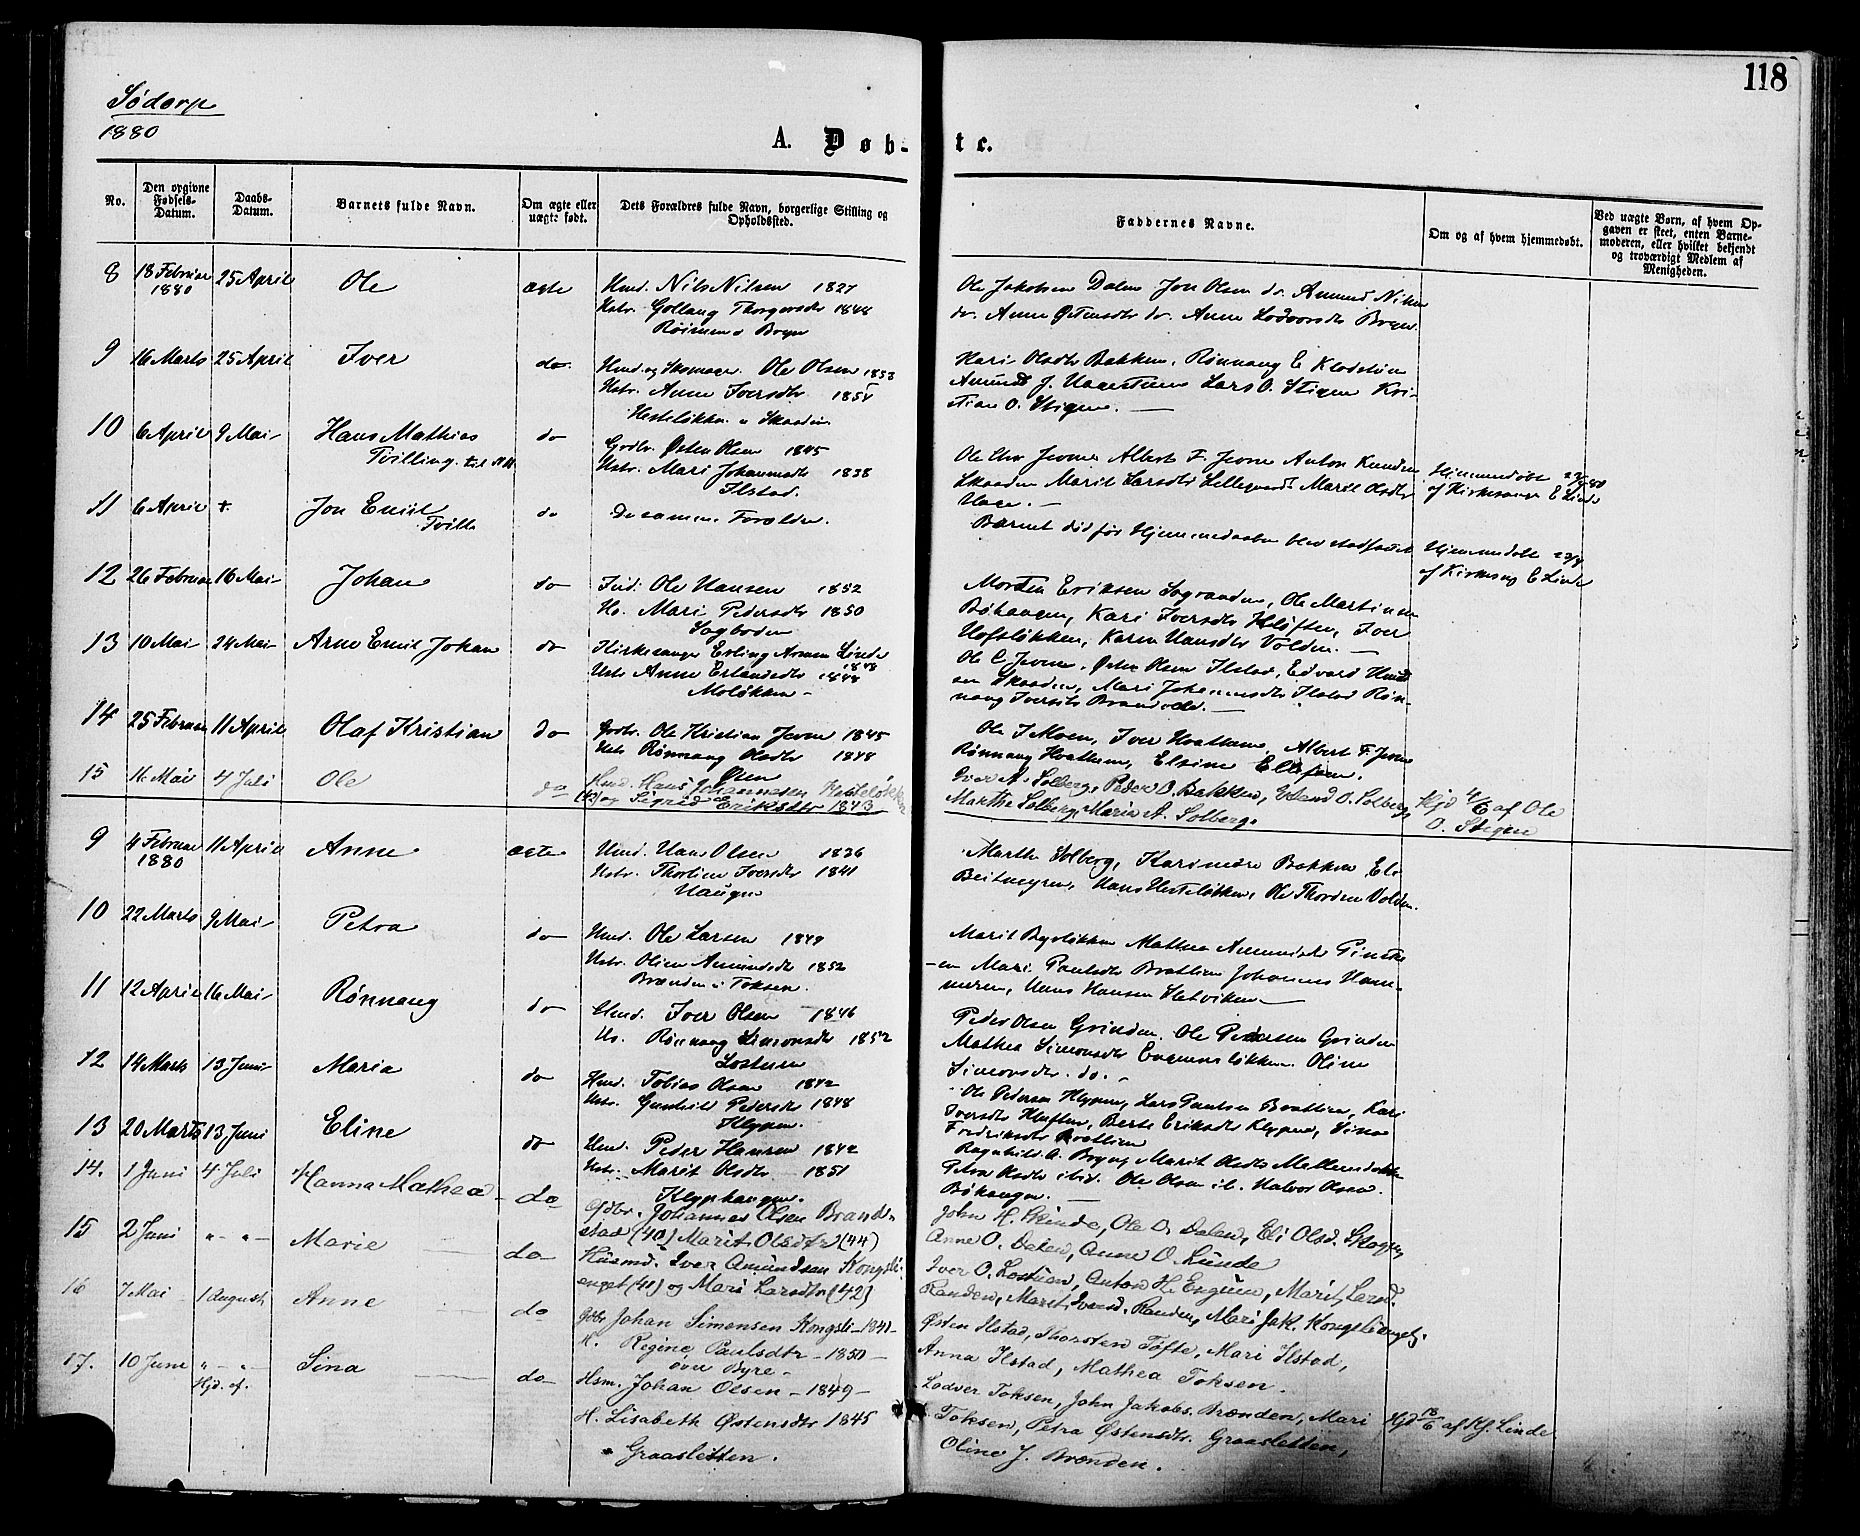 118
Södorp
1880
A. Døb-
te.
No.
Den opgivne Fødsels-Datum.
Daabs-Datum.
Barnets fulde Navn.
Om ægte eller uægte født.
Dets Forældres fulde Navn, borgerlige Stilling og Opholdssted.
Faddernes Navne.
Om og af hvem hjemmedøbt.
Ved uægte Børn, af hvem Opgaven er skeet, enten Barnemoderen, eller hvilket bekjendt og troværdigt Medlem af Menigheden.
8 18 Februar 1880 25 April Ole ægte Husmd. Nils Nilsen 1827
Hstr. Gollaug Thorgersdtr 1844
Ole Jakobsen Dalen Jon Olsen do. Amund Nilsen
do. Anne Østensdtr do. Anne Lodvorsdtr Bryn
9 16 Marts 25 April Iver do. Husmd. og Skomager Ole Olsen 1853
Hstr. Anne Iversdtr 1851
Hesteløkken u Skaaden
Kari Olsdtr Bakken, Rønnaug E
Amund J. Lars O. Stigen Kri-
stian O. Stigen.
10 6 April 9 Mai Hans Mathias do Grdbr. Østen Olsen 1845
Tvilling til N 11
Hstr. Mari Johannesdtr 1838
Ilstad.
Ole Chr Jevne Albert F. Jevne Anton Knudsen
Skaaden Marit Larsdtr Lillegaard Marit Olsdtr
Hage. Hjemmedøbt
af Kirkesanger E Linde
11 6 April + Jon Emil do De samme Forældre.
Tvill.
Barnet død før Hjemmedaaben blev stadfæstet Hjemmedøbt
af Kirkesang E Linde
12 26 Februar 16 Mai Johan do Ind. Ole Hansen 1852
Ho. Mari Pedersdtr 1850
Sagboden
Morten Eriksen Sagranden, Ole Martinsen
Bøhaugen, Kari Iversdtr Kløften, Iver
Hofsløkken, Karen Hansdtr Volden.
13 10 Mai 24 Mai Arne Emil Johan do Kirkesanger Erling Arnesen Linde
1848
Hstr Anne Erlandsdtr 1848
Moløkken
Ole C Jevne, Østen Olsen Ilstad, Edvard Knud
sen Skaaden, Mari Johannesdtr Ilstad Røn-
naug Iversdtr Brandvold.
14 25 Februar 11 April Olaf Kristian do Grdbr. Ole Kristian Jevne 1845
Hstr Rønnaug Olsdtr 1848
Øien
Ole I Moen, Iver Hvattum, Albert F. Jevne
Rønnaug Hvattum, Elsine Ellefsen.
15 16 Mai 4 Juli Ole do Husmd. Hans Johannesen Hesteløkken
(43) og Sigrid Eriksdtr 1843
Iver A. Solberg, Peder O. Bakken, Erland O. Solberg,
Marthe Solberg, Marie A. Solberg. Hjd 4/6 af Ole
O. Stigen
9 4 Februar 1880 11 April Anne ægte Husmd. Hans Olsen 1836
Hstr. Thorline Iversdtr 1841
Haugen
Marthe Solberg, Karimore Bakken Eli
Beitmyren, Hans Hesteløkken, Ole Thordsen Volden.
10 22 Marts 9 Mai Petra do Husmd. Ole Larsen 1849
Hstr. Oline Amundsdtr 1852
Brænden i Toksen.
Marit Bysløkken Mathea Amundsdtr
Mari Paulsdtr Brattlien Johannes Ham-
meren, Hans Hansen Sletviken
11 12 April 16 Mai Rønnaug do Husmd. Iver Olsen 1846
Hs. Rønnaug Simonsdtr 1852
Lostuen
Peder Olsen Grinden Ole Pedersen Grinden
Mathea Simonsdtr Engumsløkken Oline
Simonsdtr. do.
12 14 Marts 13 Juni Maria do Husmd. Tobias Olsen 1842
Hstr. Gunhild Pedersdtr 1848
Klyppen.
Ole Pedersen Klyppen, Lars Paulsen Brattlien, Kari
Iversdtr Kløften, Berte Eriksdtr Klyppen, Sina
Fredriksdtr Brattlien
13 20 Marts 13 Juni Eline do Husmd. Peder Hansen 1842
Hstr. Marit Olsdtr 1851
Klyphaugen.
Ragnhild A. Bryn, Marit Olsdtr
Petra Olsdtr ibid. Ole Olsen ib. Halvor Olsen
Bøhaugen.
14. 1 Juni 4 Juli Hanna Mathea do Gdbr. Johannes Olsen Brand-
stad (40) Marit Olsdtr (44)
John H. Skinde, Ole O. Dalen, Eli Olsd. Skogen,
Anne O. Dalen, Anne O. Lunde
15 2 Juni " - " - Marie do Husmd. Iver Amundsen Kongsli-
enget (41) og Mari Larsdtr (42)
Iver O. Lostuen, Anton H. Engum, Marit Larsd.
Randen, Marit Iversd. Randen, Mari Jak. Kongslienget.
16 7 Mai 1 August Anne do Gdbr Johan Simensen Kongsli 1841
H. Regine Paulsdtr 1850
øvre Byre
Østen Ilstad, Thorsten Tofte, Mari Ilstad,
Anna Ilstad, Mathea Toksen.
17. 10 June " - " - Sina do Hsm. Johan Olsen 1849
Hjd. af.
H. Lisabeth Østensdtr 1845
Graasletten.
Lodver Toksen, John Jakobs. Brænden, Mari
Toksen, Petra Østensdtr. Graasletten,
Oline J. Brænden.
Hjd af Kf. Linde